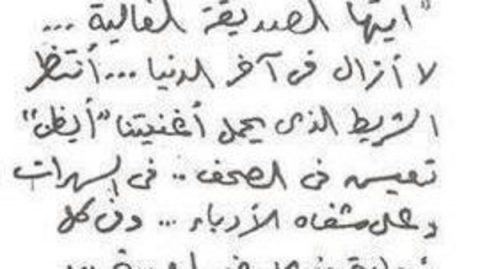 "ايتها الصديقة الغالية ...
لا أزال فى آخر الدنيا ... أنتظر
الشريط الذى يحمل أغنيتنا "أيظن"
تعيش فى الصحف .. فى السهرات
وعلى شفاه الأدباء ... وفى كل